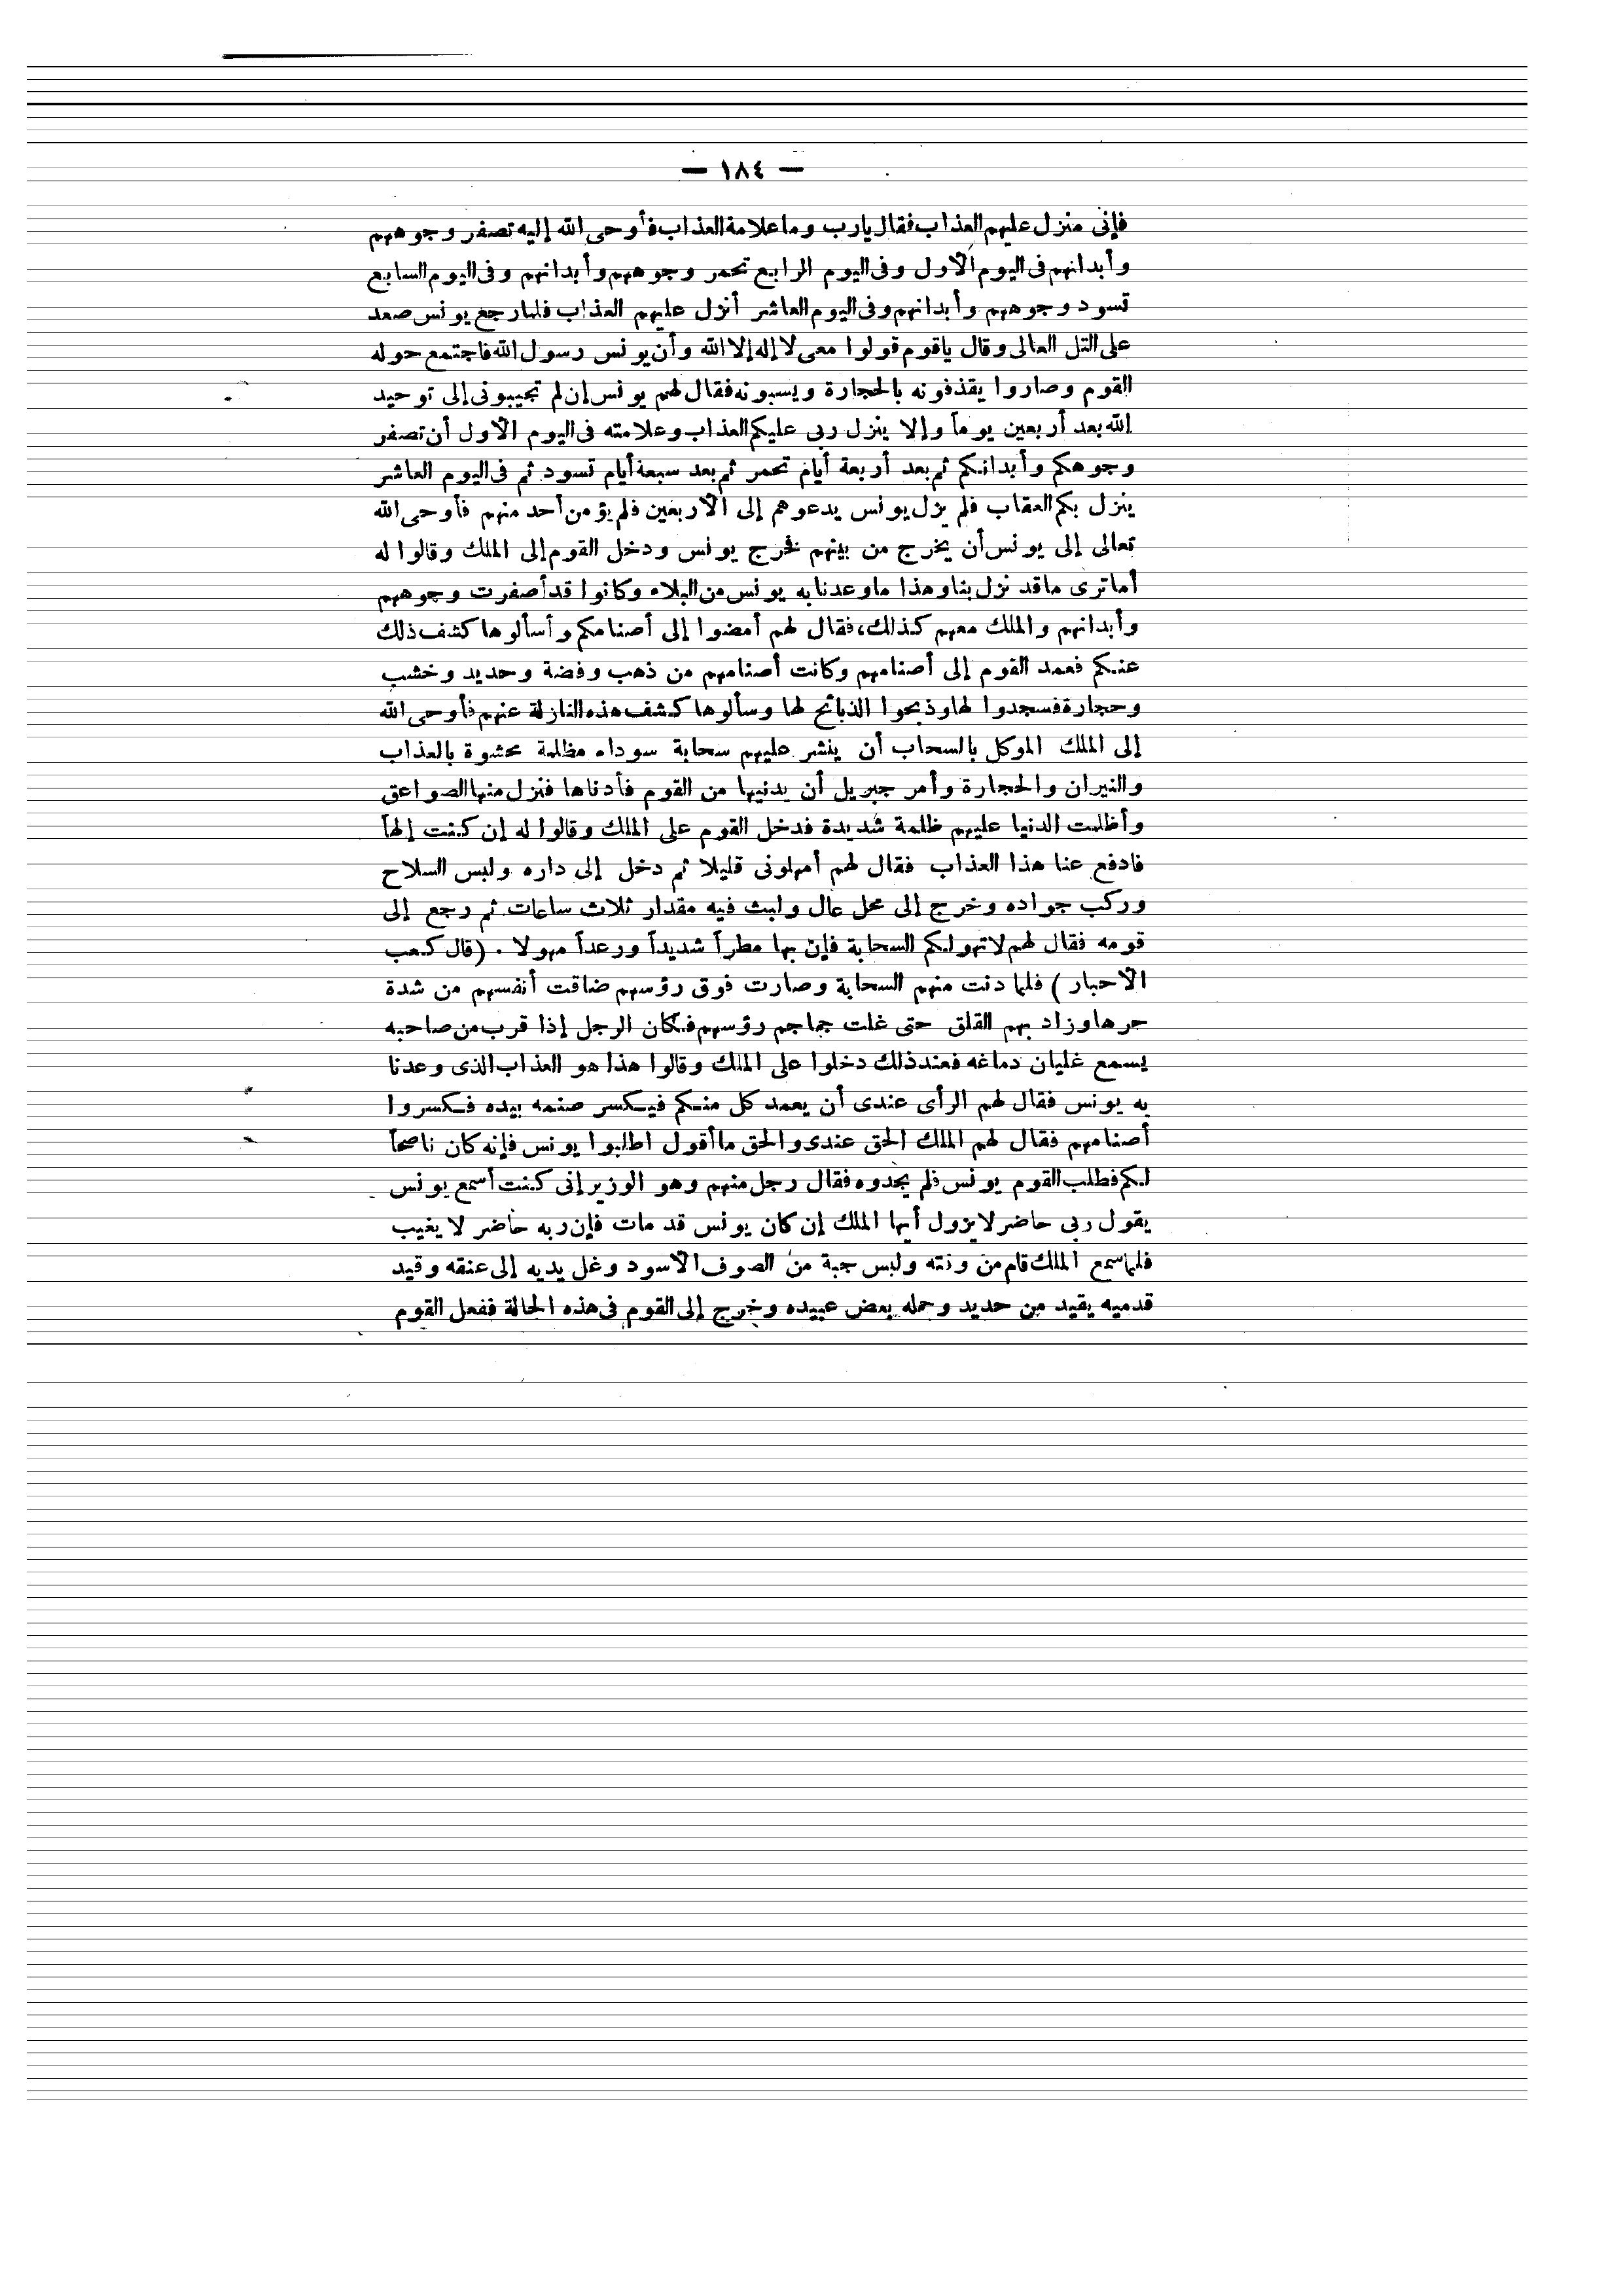 — ١٨٤ —
فإنى منزل عليهم العذاب فقال يارب وما علامة العذاب فأوحى الله إليه تصفر وجوههم
وأبدانهم فى اليوم الأول وفى اليوم الرابع تحمر وجوههم وأبدانهم وفى اليوم السابع
تسود وجوههم وأبدانهم وفى اليوم العاشر أنزل عليهم العذاب فلما رجع يونس صعد
على التل العالى وقال ياقوم قولوا معى لا إله إلا الله وأن يونس رسول الله فاجتمع حوله
القوم وصاروا يقذفونه بالحجارة ويسبونه فقال لهم يونس إن لم تجيبونى إلى توحيد
الله بعد أربعين يوماً وإلا ينزل ربى عليكم العذاب وعلامته فى اليوم الأول أن تصفر
وجوهكم وأبدانكم ثم بعد أربعة أيام تحمر ثم بعد سبعة أيام تسود ثم فى اليوم العاشر
ينزل بكم العقاب فلم يزل يونس يدعوهم إلى الأربعين فلم يؤمن أحد منهم فأوحى الله
تعالى إلى يونس أن يخرج من بينهم فخرج يونس ودخل القوم إلى الملك وقالوا له
أما ترى ماقد نزل بنا وهذا ماوعدنا به يونس من البلاء وكانوا قد أصفرت وجوههم
وأبدانهم والملك معهم كذلك، فقال لهم أمضوا إلى أصنامكم وأسألوها كشف ذلك
عنكم فعمد القوم إلى أصنامهم وكانت أصنامهم من ذهب وفضة وحديد وخشب
وحجارة فسجدوا لها وذبحوا الذبائح لها وسألوها كشف هذه النازلة عنهم فأوحى الله
إلى الملك الموكل بالسحاب أن ينشر عليهم سحابة سوداء مظلمة محشوة بالعذاب
والنيران والحجارة وأمر جبريل أن يدنيها من القوم فأدناها فنزل منها الصواعق
وأظلمت الدنيا عليهم ظلمة شديدة فدخل القوم على الملك وقالوا له إن كنت إلهاً
فادفع عنا هذا العذاب فقال لهم أمهلونى قليلا ثم دخل إلى داره ولبس السلاح
وركب جواده وخرج إلى محل عال ولبث فيه مقدار ثلاث ساعات ثم رجع إلى
قومه فقال لهم لاتهولكم السحابة فإن بها مطراً شديداً ورعداً مهولا . (قال كعب
الأحبار) فلما دنت منهم السحابة وصارت فوق رؤسهم ضاقت أنفسهم من شدة
حرها وزاد بهم القلق حتى غلت جماجم رؤسهم فكان الرجل إذا قرب من صاحبه
يسمع غليان دماغه فعند ذلك دخلوا على الملك وقالوا هذا هو العذاب الذى وعدنا
به يونس فقال لهم الرأى عندى أن يعمد كل منكم فيكسر صنمه بيده فكسروا
أصنامهم فقال لهم الملك الحق عندى والحق ما أقول اطلبوا يونس فإنه كان ناصحاً
لكم فطلب القوم يونس فلم يجدوه فقال رجل منهم وهو الوزير إنى كنت أسمع يونس
يقول ربى حاضر لا يزول أيها الملك إن كان يونس قد مات فإن ربه حاضر لا يغيب
فلما سمع الملك قام من وقته ولبس جبة من الصوف الأسود وغل يديه إلى عنقه وقيد
قدميه بقيد من حديد وحمله بعض عبيده وخرج إلى القوم فى هذه الحالة ففعل القوم